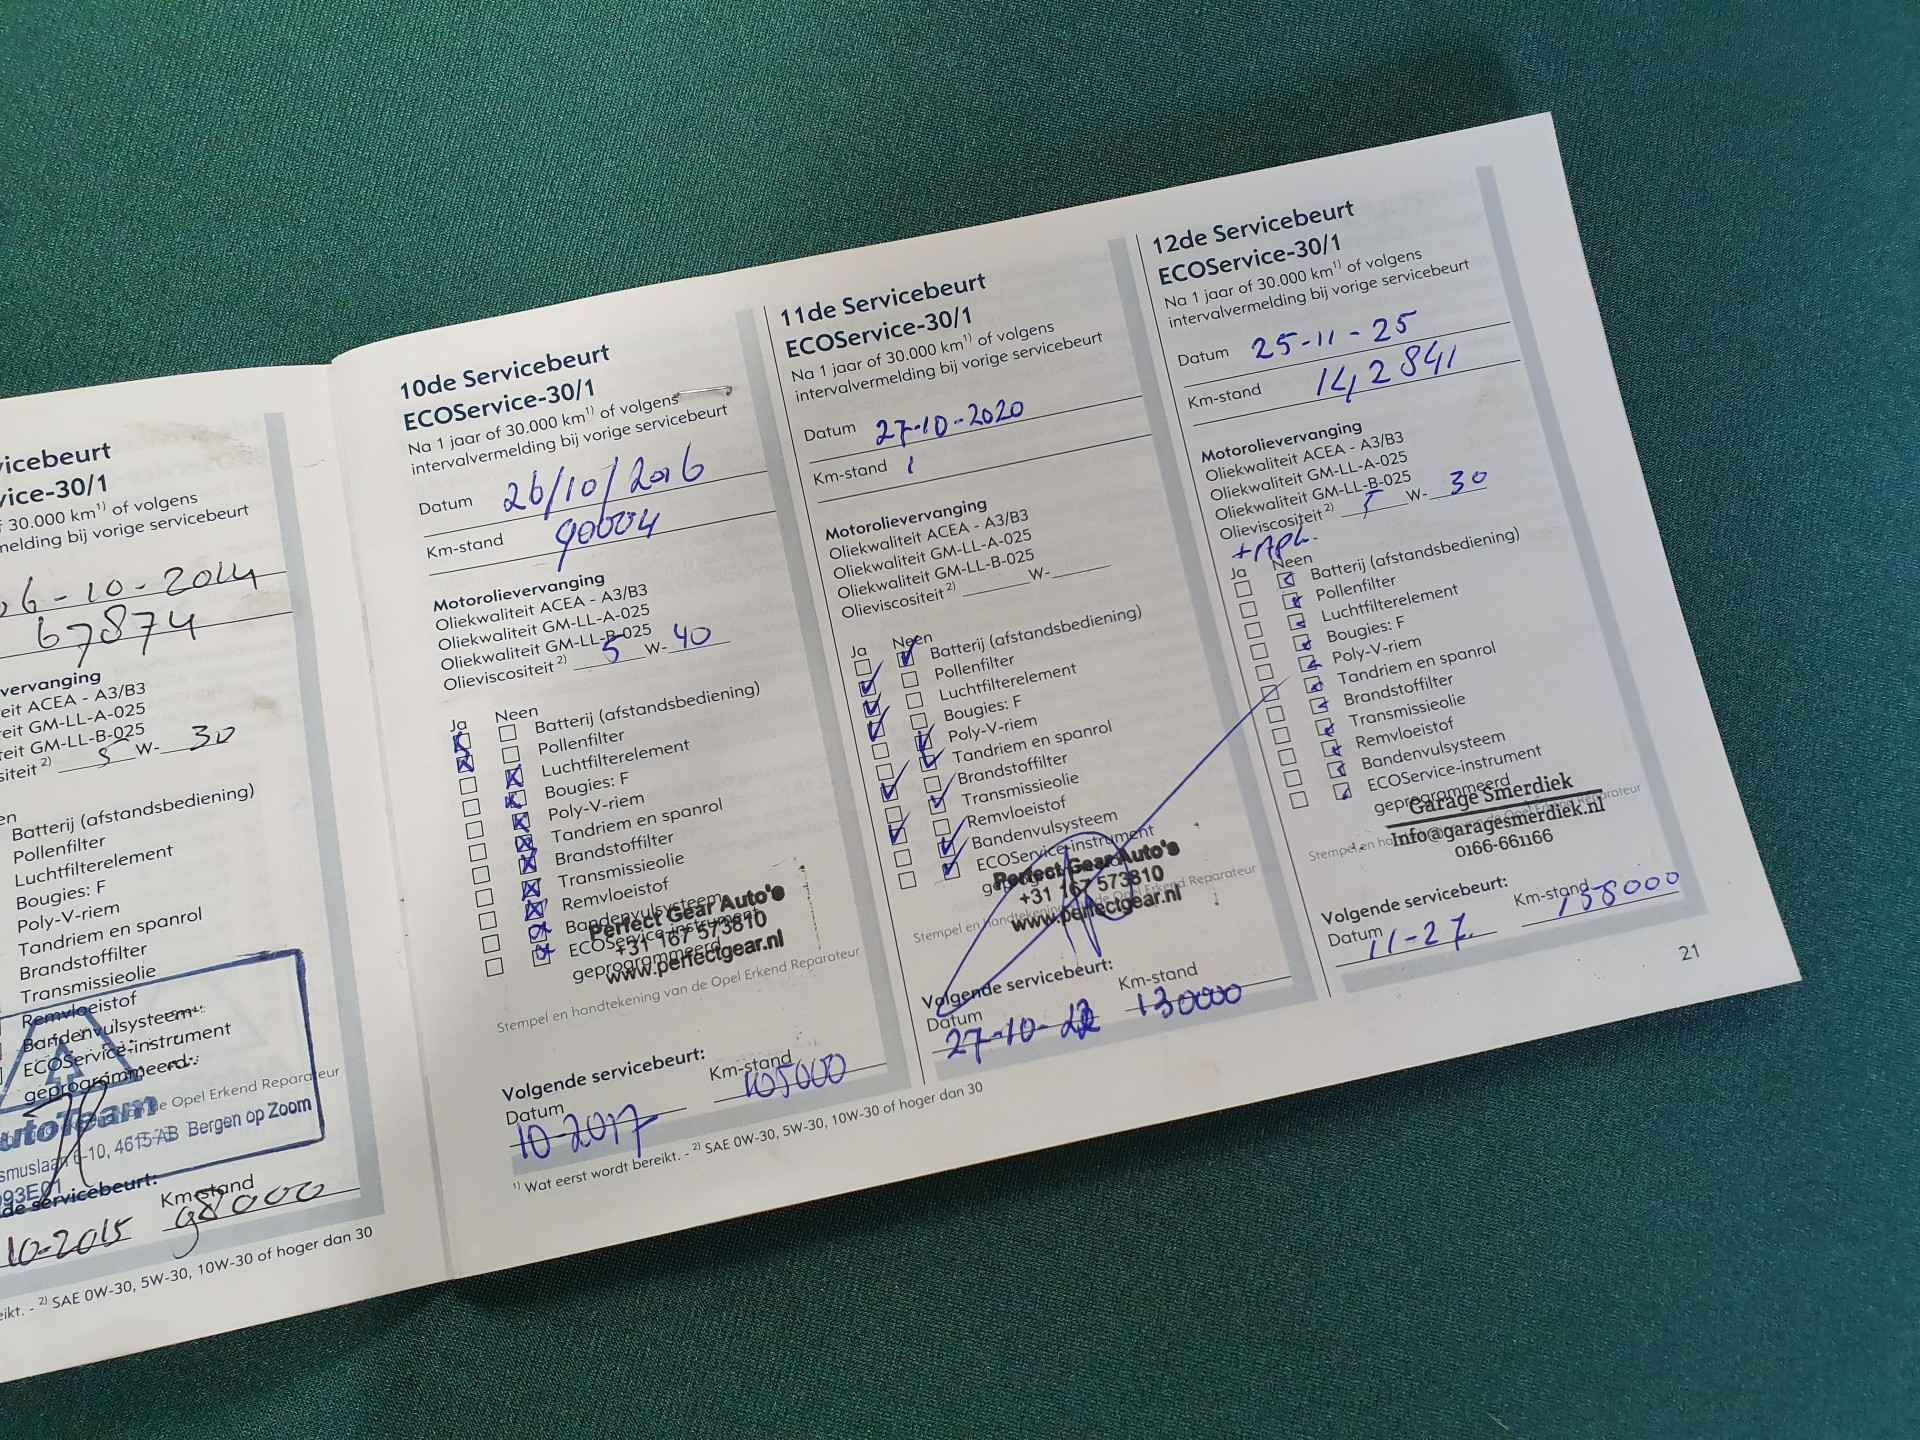 vicebeurt
vice-30/1
f 30.000 km¹⁾ of volgens
melding bij vorige servicebeurt
6-10-2014
67874
vervanging
eit ACEA - A3/B3
eit GM-LL-A-025
eit GM-LL-B-025
siteit ²⁾ 5 W- 30
en
Batterij (afstandsbediening)
Pollenfilter
Luchtfilterelement
Bougies: F
Poly-V-riem
Tandriem en spanrol
Brandstoffilter
Transmissieolie
Remvloeistof
Bandenvulsysteem
ECOService-instrument
geprogrammeerd
de Opel Erkend Reparateur
utoTeam
smuslaan 6-10, 4615 AB Bergen op Zoom
093E01
de servicebeurt:
Km-stand
10-2015 98000
eikt. - ²⁾ SAE 0W-30, 5W-30, 10W-30 of hoger dan 30
10de Servicebeurt
ECOService-30/1
Na 1 jaar of 30.000 km¹⁾ of volgens
intervalvermelding bij vorige servicebeurt
Datum 26/10/2016
Km-stand 90004
Motorolievervanging
Oliekwaliteit ACEA - A3/B3
Oliekwaliteit GM-LL-A-025
Oliekwaliteit GM-LL-B-025
Olieviscositeit ²⁾ 5 W- 40
Ja Neen
Batterij (afstandsbediening)
Pollenfilter
Luchtfilterelement
Bougies: F
Poly-V-riem
Tandriem en spanrol
Brandstoffilter
Transmissieolie
Remvloeistof
Bandenvulsysteem
ECOService-instrument
geprogrammeerd
Perfect Gear Auto's
+31 167 573810
www.perfectgear.nl
Stempel en handtekening van de Opel Erkend Reparateur
Volgende servicebeurt:
Datum Km-stand
10-2017 105000
¹⁾ Wat eerst wordt bereikt. - ²⁾ SAE 0W-30, 5W-30, 10W-30 of hoger dan 30
11de Servicebeurt
ECOService-30/1
Na 1 jaar of 30.000 km¹⁾ of volgens
intervalvermelding bij vorige servicebeurt
Datum 27-10-2020
Km-stand
Motorolievervanging
Oliekwaliteit ACEA - A3/B3
Oliekwaliteit GM-LL-A-025
Oliekwaliteit GM-LL-B-025
Olieviscositeit ²⁾ W-
Ja Neen
Batterij (afstandsbediening)
Pollenfilter
Luchtfilterelement
Bougies: F
Poly-V-riem
Tandriem en spanrol
Brandstoffilter
Transmissieolie
Remvloeistof
Bandenvulsysteem
ECOService-instrument
Perfect Gear Auto's
+31 167 573810
www.perfectgear.nl
Stempel en handtekening van de Opel Erkend Reparateur
Volgende servicebeurt:
Datum Km-stand
27-10- 130000
12de Servicebeurt
ECOService-30/1
Na 1 jaar of 30.000 km¹⁾ of volgens
intervalvermelding bij vorige servicebeurt
Datum 25-11-25
Km-stand 142841
Motorolievervanging
Oliekwaliteit ACEA - A3/B3
Oliekwaliteit GM-LL-A-025
Oliekwaliteit GM-LL-B-025
Olieviscositeit ²⁾ 5 W- 30
Ja Neen
Batterij (afstandsbediening)
Pollenfilter
Luchtfilterelement
Bougies: F
Poly-V-riem
Tandriem en spanrol
Brandstoffilter
Transmissieolie
Remvloeistof
Bandenvulsysteem
ECOService-instrument
geprogrammeerd
Garage Smerdiek
Info@garagesmerdiek.nl
0166-661166
Stempel en de Opel Erkend Reparateur
Volgende servicebeurt:
Datum Km-stand
11-27. 158000
21